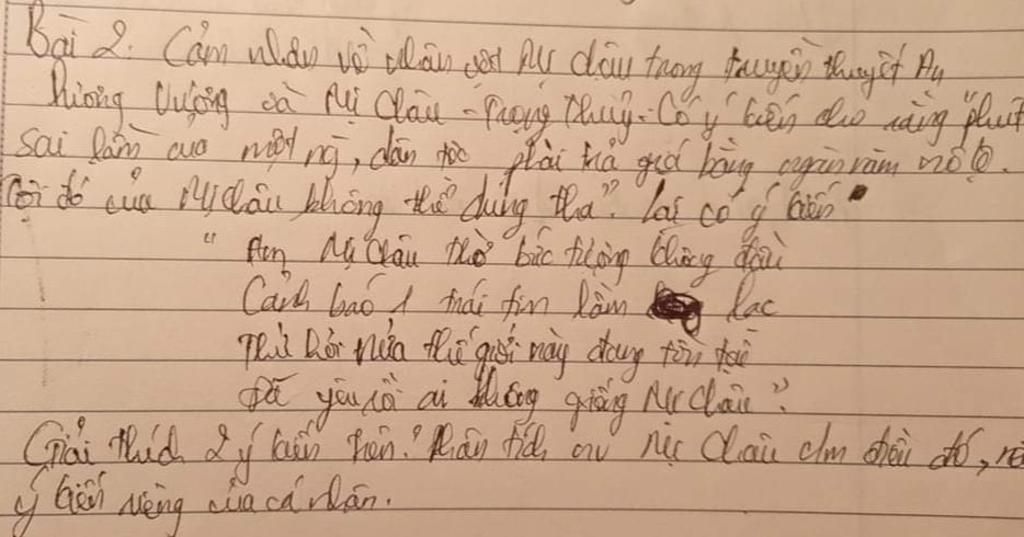 Bài 2. Cảm nhận về nhân vật Mỵ Châu trong truyền thuyết An
Dương Vương và Mị Châu - Trọng Thuỷ. Có ý kiến cho rằng "phút
sai lầm của một ng, dân tộc phải trả giá bằng ngàn năm nô lệ.
Tội đó của Mị Châu không thể dung tha". Lại có ý kiến
" Am Mị Châu thờ bức tượng không đầu
Cảnh báo 1 trái tim lầm lạc
Thử hỏi nửa thế giới này đang tồn tại
Đã yêu rồi ai không giống Mị Châu".
Giải thích 2 ý kiến trên? Phân tích nv Mị Châu c/m điều đó, nêu
ý kiến riêng của cá nhân.